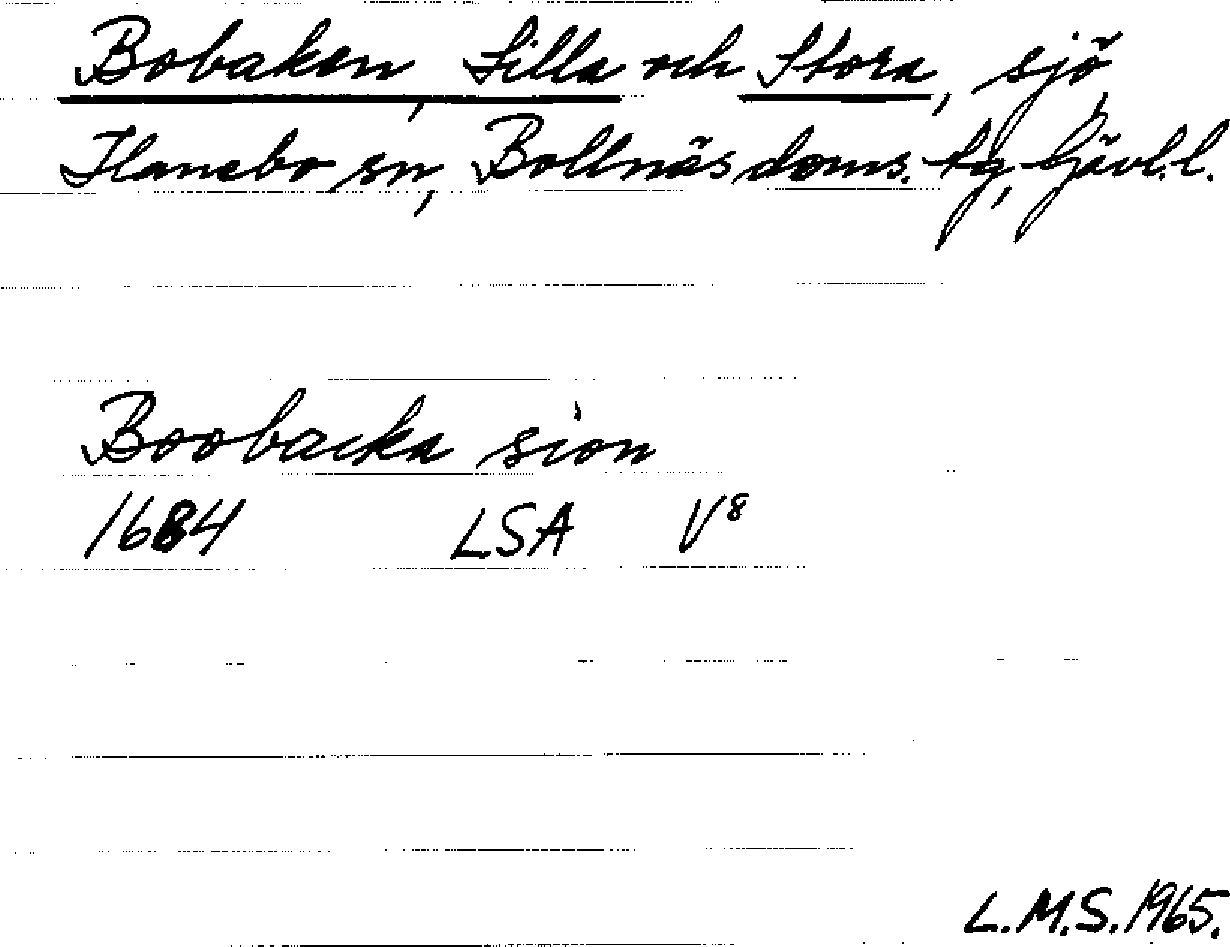 Bobaken, Lilla och Stora, sjö,
Hanebo sn, Bollnäs doms. tg, Gävl.l.
Boobacka sion
1684 LSA V⁸
L.M.S. 1965.